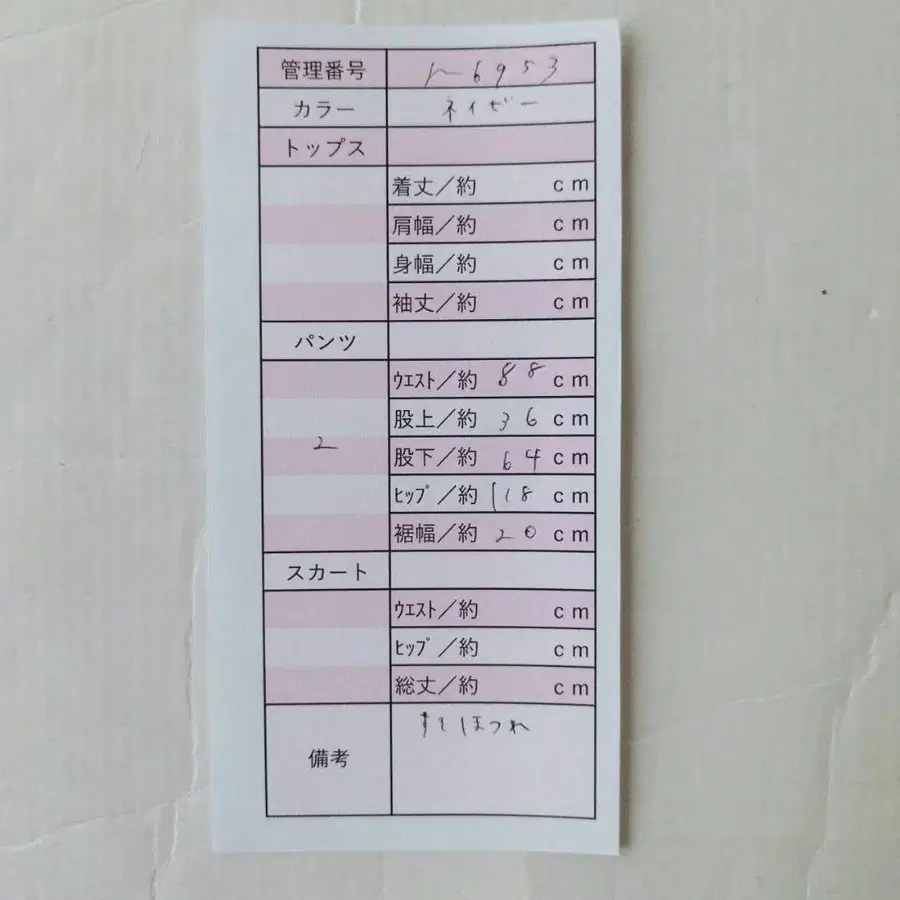 管理番号 6953
カラー ネイビー
トップス
着丈／約 cm
肩幅／約 cm
身幅／約 cm
袖丈／約 cm
パンツ
ｳｴｽﾄ／約 88 cm
股上／約 36 cm
2
股下／約 64 cm
ﾋｯﾌﾟ／約 118 cm
裾幅／約 20 cm
スカート
ｳｴｽﾄ／約 cm
ﾋｯﾌﾟ／約 cm
総丈／約 cm
備考 ほつれ